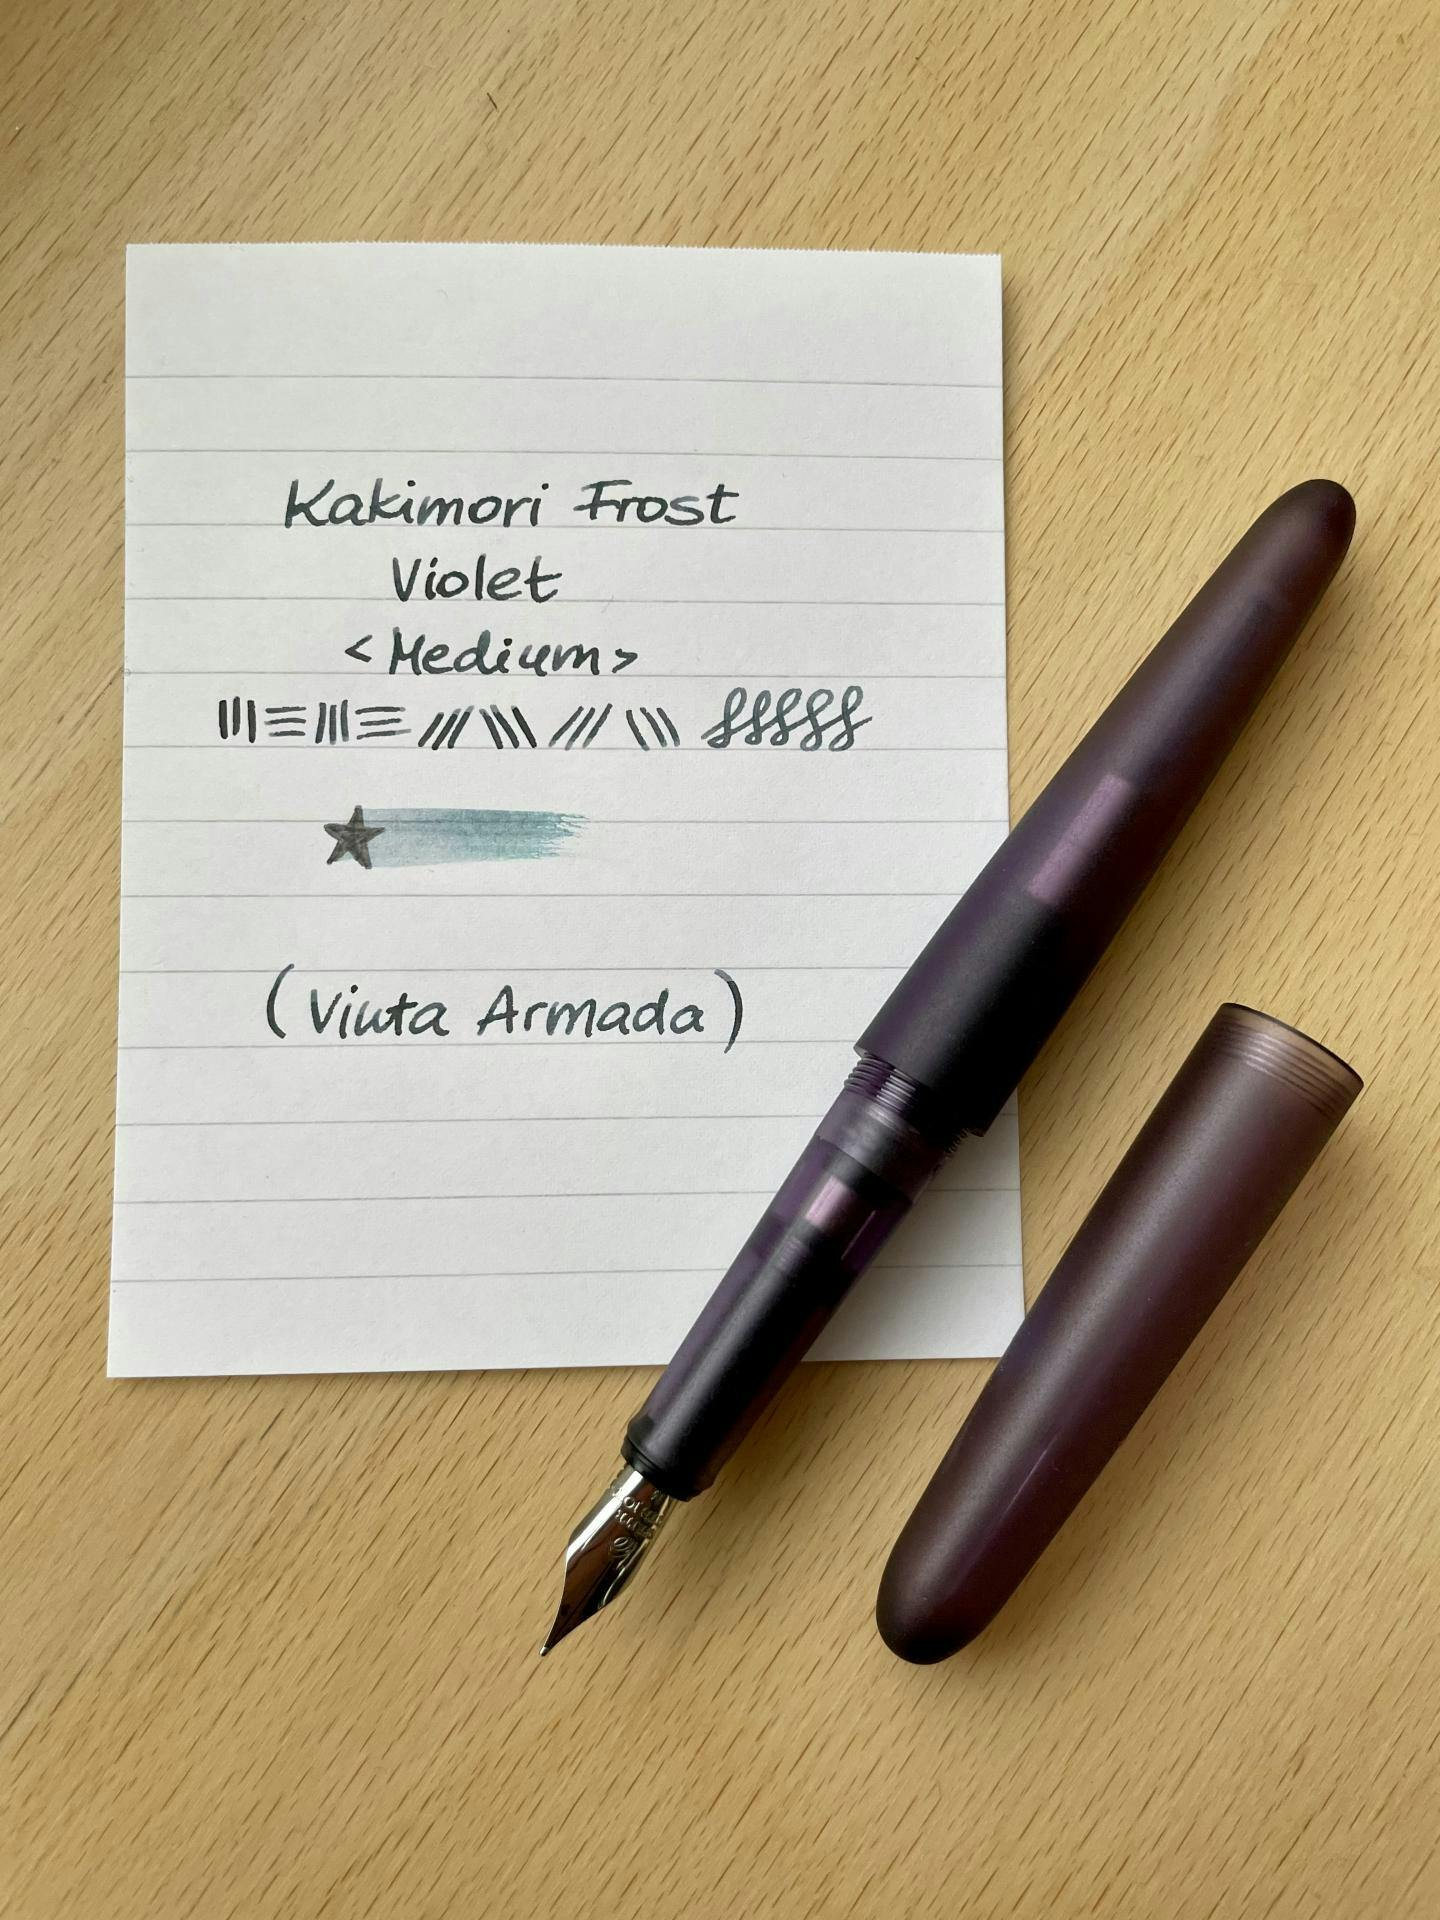 Kakimori Frost
Violet
<Medium>
(Viuta Armada)